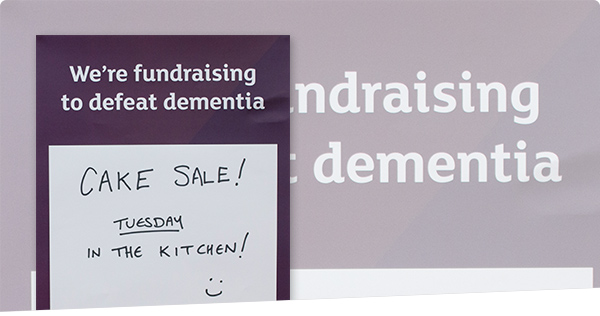 We're fundraising
to defeat dementia
CAKE SALE!
TUESDAY
IN THE KITCHEN!
:)
ndraising
dementia